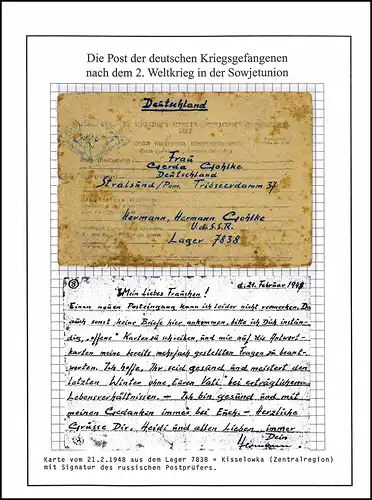 Die Post der deutschen Kriegsgefangenen
nach dem 2. Weltkrieg in der Sowjetunion
Deutschland
Frau
Gerda Gohlke
Deutschland
Stralsund/Pom. Tribseerdamm 37
Hermann, Hermann Gohlke
U.d.S.S.R.
Lager 7838
③
d. 21. Februar 1948
Mein liebes Frauchen!
Einen neuen Posteingang kann ich leider nicht vermerken. Da
auch sonst keine Briefe hier ankommen, bitte ich Dich instän-
dig, "offene" Karten zu schreiben, und mir auf die Antwort-
karten meine bereits mehrfach gestellten Fragen zu beant-
worten. Ich hoffe, Ihr seid gesund und meistert den
letzten Winter ohne Euren Vati bei erträglichen
Lebensverhältnissen. – Ich bin gesund und mit
meinen Gedanken immer bei Euch. – Herzliche
Grüsse Dir, Heidi und allen Lieben, immer
Dein
Hermann
Karte vom 21.2.1948 aus dem Lager 7838 = Kisselowka (Zentralregion)
mit Signatur des russischen Postprüfers.